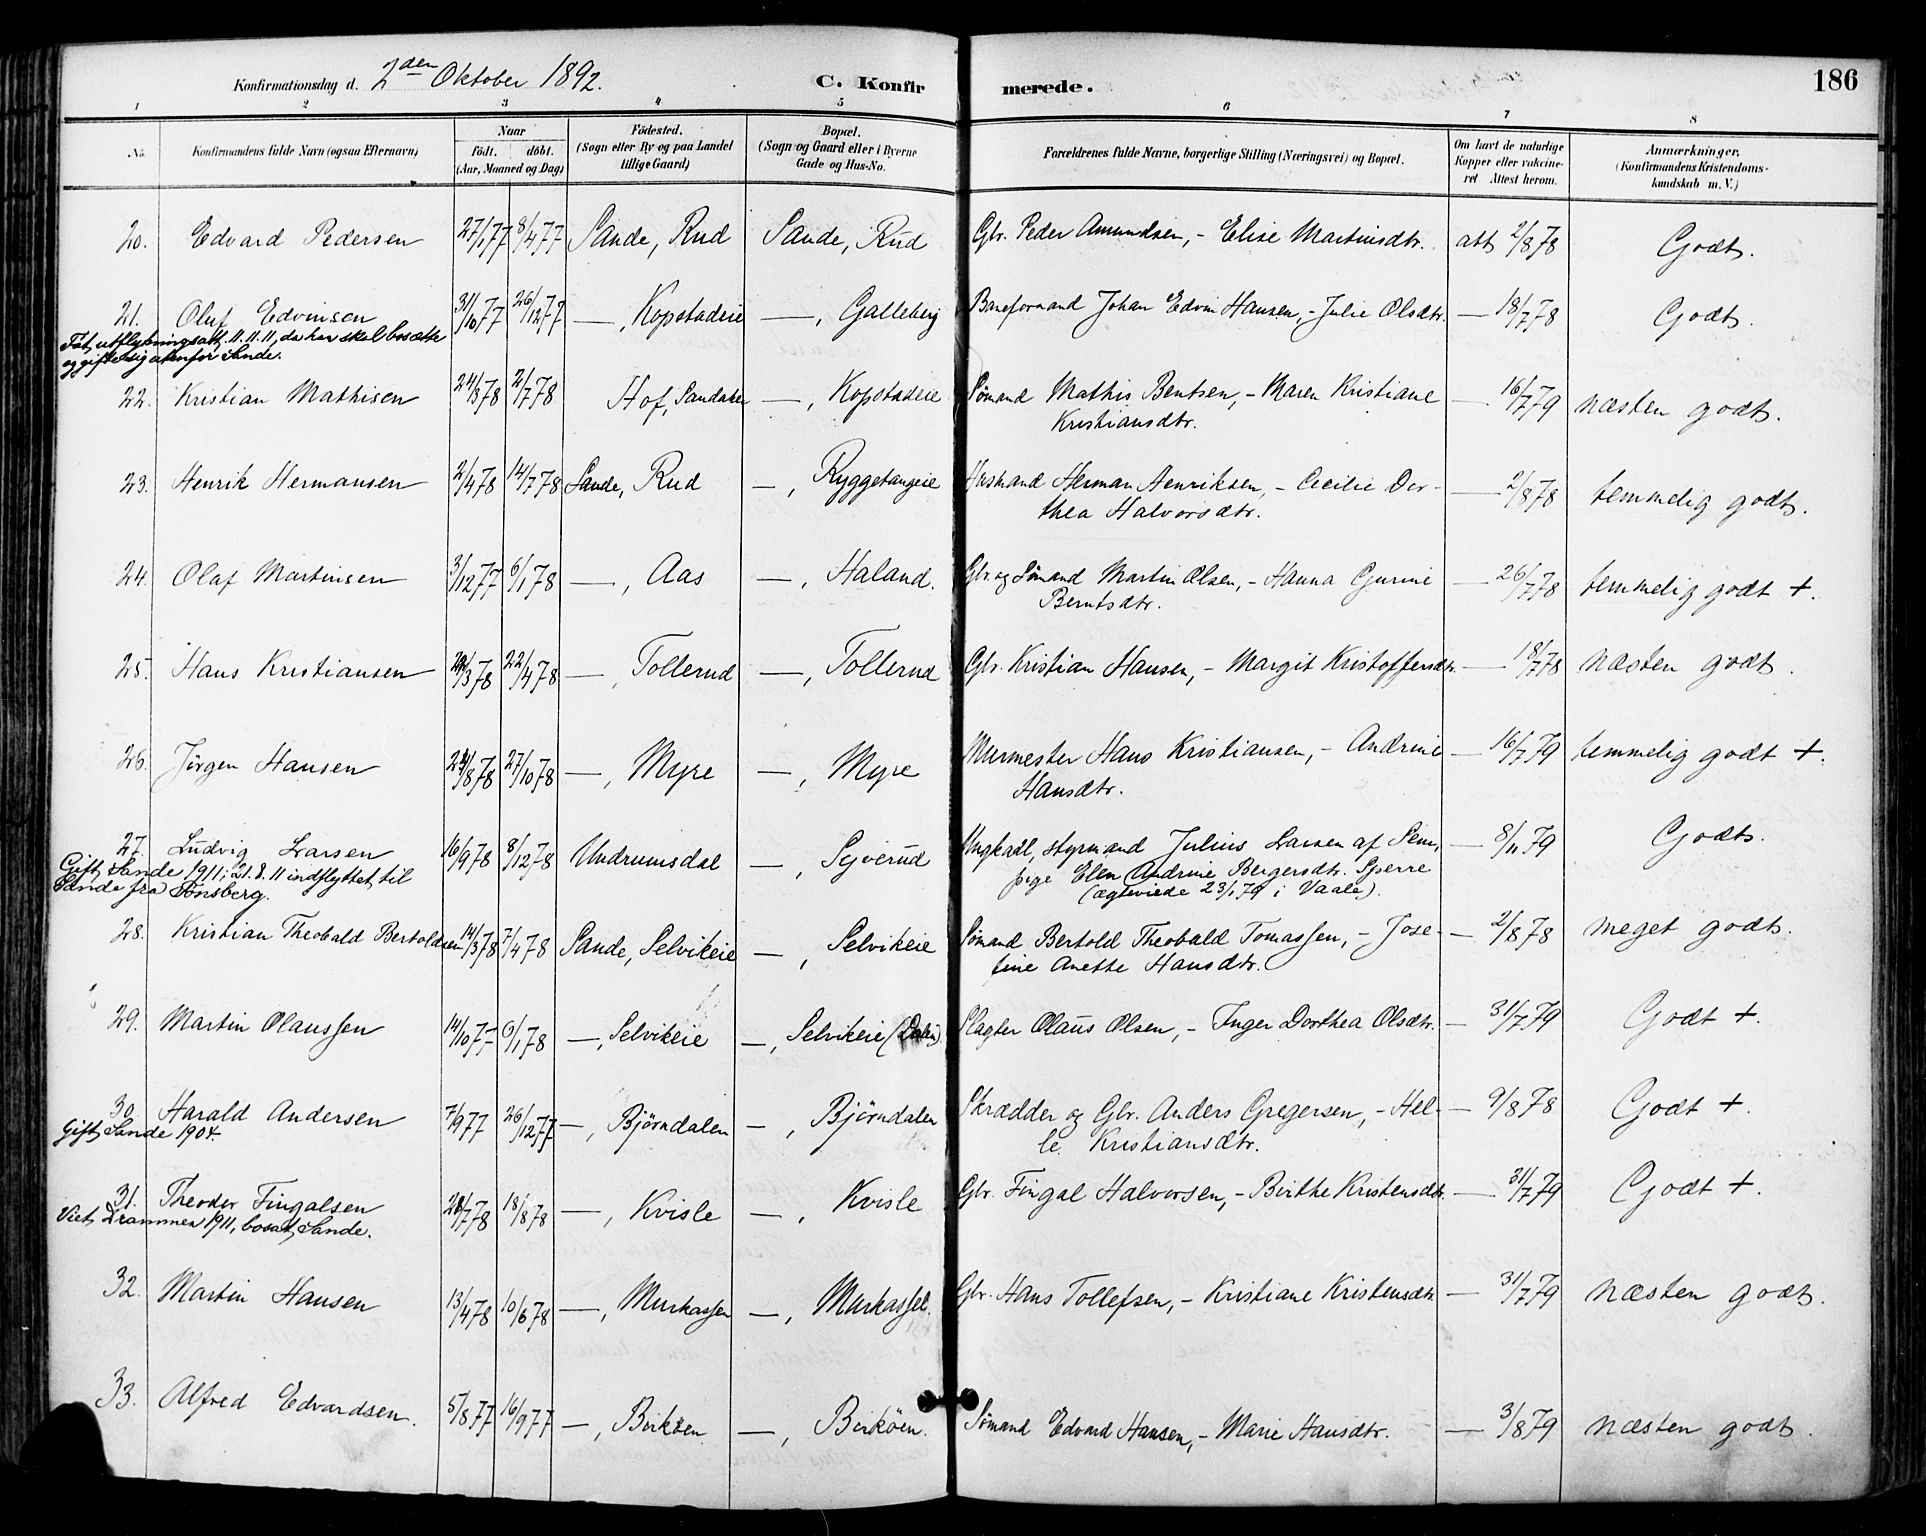 Konfirmationsdag d. 2den Oktober 1892. C. Konfirmerede. 186
1 2 3 4 5 6 7 8
No. Konfirmandens fulde Navn (ogsaa Efternavn) Naar födt. döbt. (Aar, Maaned og Dag) Födested. (Sogn eller By og paa Landet tillige Gaard) Bopæl. (Sogn og Gaard eller i Byerne Gade og Hus-No. Forældrenes fulde Navne, borgerlige Stilling (Næringsvei) og Bopæl. Om havt de naturlige Kopper eller vakcineret Attest herom. Anmærkninger. (Konfirmandens Kristendomskundskab m. V.)
20. Edvard Pedersen 27/1 77 8/4 77 Sande, Rud Sande, Rud Gbr. Peder Amundsen, - Elise Martinsdtr. att 2/8 78 Godt.
21. Oluf Edvinsen 31/10 77 26/12 77 —, Kopstadeie —, Galleberg Baneformand Johan Edvin Hansen, - Julie Olsdtr. — 18/7 78 Godt.
Fåt utflytningsatt. 11.11.11, da han skal bosætte
og gifte sig utenfor Sande.
22. Kristian Mathisen 24/3 78 2/7 78 Hof, Sandaker —, Kopstadeie Sømand Mathis Bentsen, - Maren Kristiane — 16/7 79 næsten godt.
Kristiansdtr.
23. Henrik Hermansen 2/4 78 14/7 78 Sande, Rud —, Ryggetangeie Husmand Herman Henriksen, - Cecilie Dor- — 2/8 78 temmelig godt.
thea Halvorsdtr.
24. Olaf Martinsen 3/12 77 6/1 78 —, Aas —, Haland. Gbr. og Sømand Martin Olsen, - Hanna Gurine — 26/7 78 temmelig godt +.
Berntsdtr.
25. Hans Kristiansen /3 78 22/4 78 —, Tollerud —, Tollerud Gbr. Kristian Hansen, - Margit Kristoffersdtr. — 18/7 78 næsten godt.
26. Jörgen Hansen /8 78 27/10 78 —, Myre —, Myre Murmester Hans Kristiansen, - Andrine — 16/7 79 temmelig godt +.
Hansdtr.
27. Ludvig Larsen 16/9 78 8/12 78 Undrumsdal —, Syverud Ungkarl, styrmand Julius Larsen af Sem, — 8/11 79 Godt.
Gift Sande 1911; 21.8.11 indflyttet til pige Ellen Andrine Bergersdtr. Sperre
Sande fra Tönsberg. (ægteviede 23/1 79 i Vaale).
28. Kristian Theobald Bertoldsen 14/3 78 7/4 78 Sande, Selvikeie —, Selvikeie Sømand Bertold Theobald Tomassen, - Jose- — 2/8 78 meget godt.
fine Anette Hansdtr.
29. Martin Olaussen 14/10 77 6/1 78 —, Selvikeie —, Selvikeie Slagter Olaus Olsen, - Inger Dorthea Olsdtr. — 31/7 79 Godt +.
30. Harald Andersen 7/9 77 26/12 77 —, Bjørndalen —, Bjørndalen Skrædder og Gbr. Anders Gregersen, - Hel- — 9/8 78 Godt +.
Gift Sande 1904. le Kristiansdtr.
31. Theodor Fingalsen /7 78 18/8 78 —, Kvisle —, Kvisle Gbr. Fingal Halvorsen, - Birthe Kristensdtr. — 31/7 79 Godt +.
Viet Drammen 1911, bosat Sande.
32. Martin Hansen 13/4 78 10/6 78 —, Murkassen —, Murkassel. Gbr. Hans Tollefsen, - Kristiane Kristensdtr. — 31/7 79 næsten godt.
33. Alfred Edvardsen. 5/8 77 16/9 77 —, Birköen —, Birköen. Sømand Edvard Hansen, - Marie Hansdtr. — 3/8 79 næsten godt.